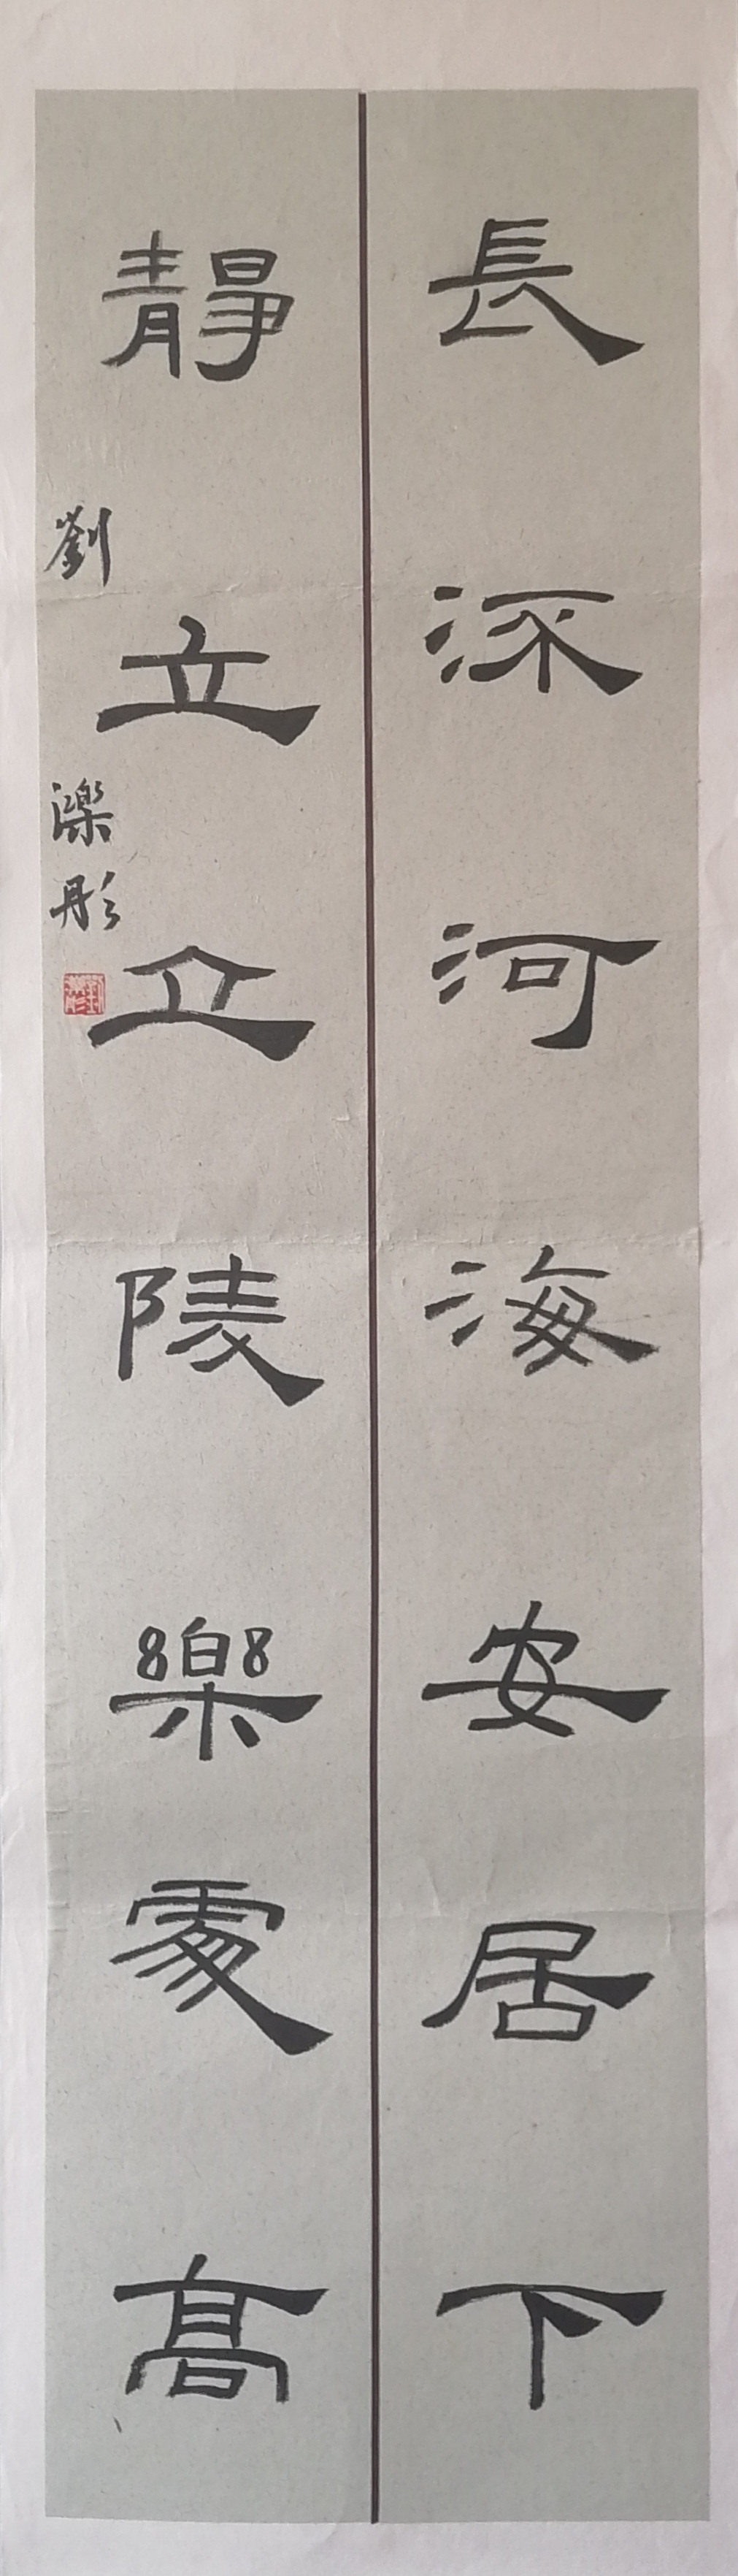 長河海安居下
靜立丘陵樂處高
劉濼彤